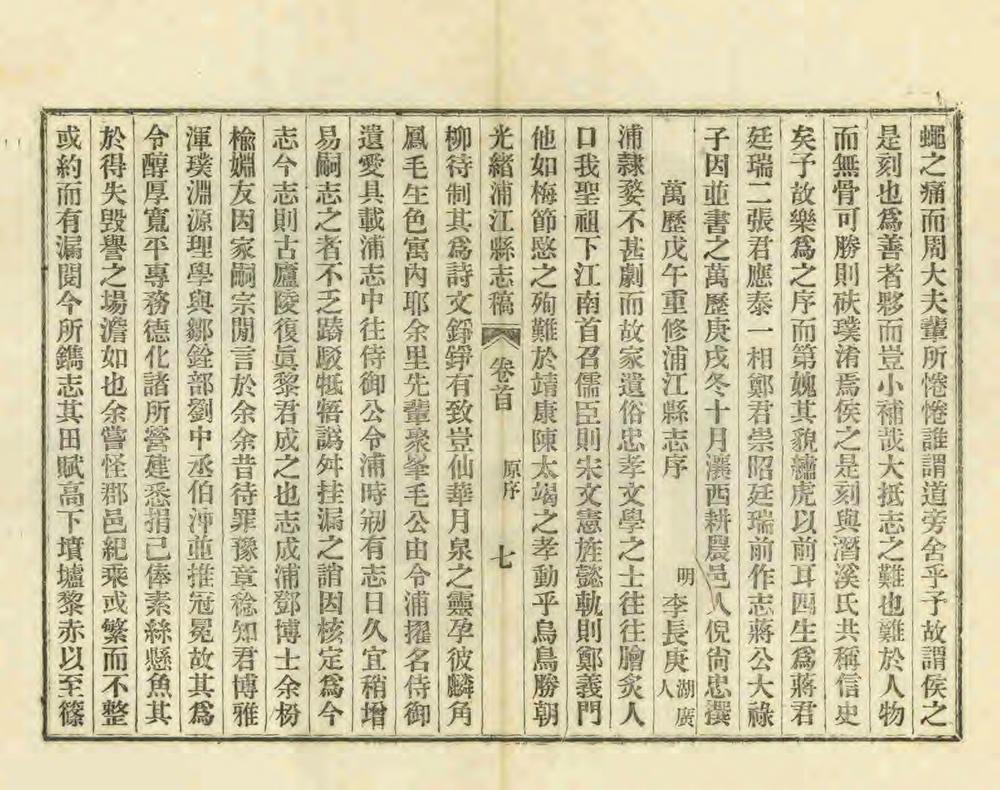 蠅之痛而周大夫輩所惓惓誰謂道旁舍乎予故謂侯之
是刻也爲善者夥而豈小補哉大抵志之難也難於人物
而無骨可勝則砆璞淆焉侯之是刻與潛溪氏共稱信史
矣予故樂爲之序而第媿其貌虎以前耳四生爲蔣君
廷瑞二張君應泰一相鄭君崇昭廷瑞前作志蔣公大祿
子因並書之萬歷庚戌冬十月瀼西耕農邑人倪尙忠撰
萬歷戊午重修浦江縣志序
明 李長庚 湖廣人
浦隸婺不甚劇而故家遺俗忠孝文學之士往往膾炙人
口我聖祖下江南首召儒臣則宋文憲旌懿軌則鄭義門
他如梅節愍之殉難於靖康陳太竭之孝動乎烏鳥勝朝
光緒浦江縣志稿 卷首 原序 七
柳待制其爲詩文錚錚有致豈仙華月泉之靈孕彼麟角
鳳毛生色寓內耶余里先輩聚峯毛公由令浦擢名侍御
遺愛具載浦志中往侍御公令浦時刱有志日久宜稍增
易嗣志之者不乏踳駁牴牾譌舛挂漏之誚因核定爲今
志今志則古廬陵復眞黎君成之也志成浦鄧博士余枌
楡姻友因家嗣宗閒言於余余昔待罪豫章稔知君博雅
渾璞淵源理學與鄒銓部劉中丞伯沖並推冠冕故其爲
令醇厚寬平專務德化諸所營建悉捐己俸素絲懸魚其
於得失毀譽之場澹如也余嘗怪郡邑紀乘或繁而不整
或約而有漏閱今所鐫志其田賦高下墳壚黎赤以至篠